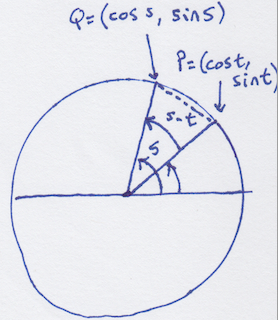 Q=(cos s, sin s)
P=(cos t,
sin t)
s-t
s